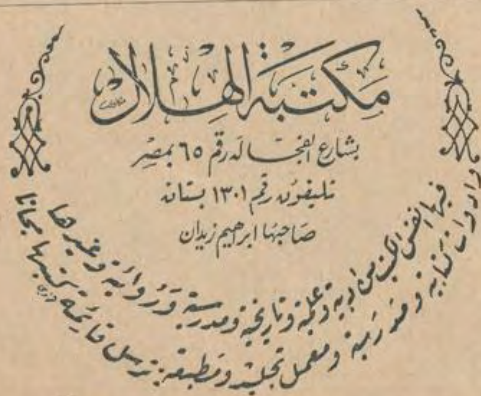 مكتبة الهلال
بشارع الفجالة رقم ٦٥ بمصر
تليفون رقم ١٣٠١ بستان
صاحبها ابراهيم زيدان
فيها انفس الكتب من ادبية وعلمية وتاريخية ومدرسية وروائية وغيرها
وادوات كتابية ومدرسية ومعمل تجليد ومطبعة: ترسل قائمة كتبها مجانا